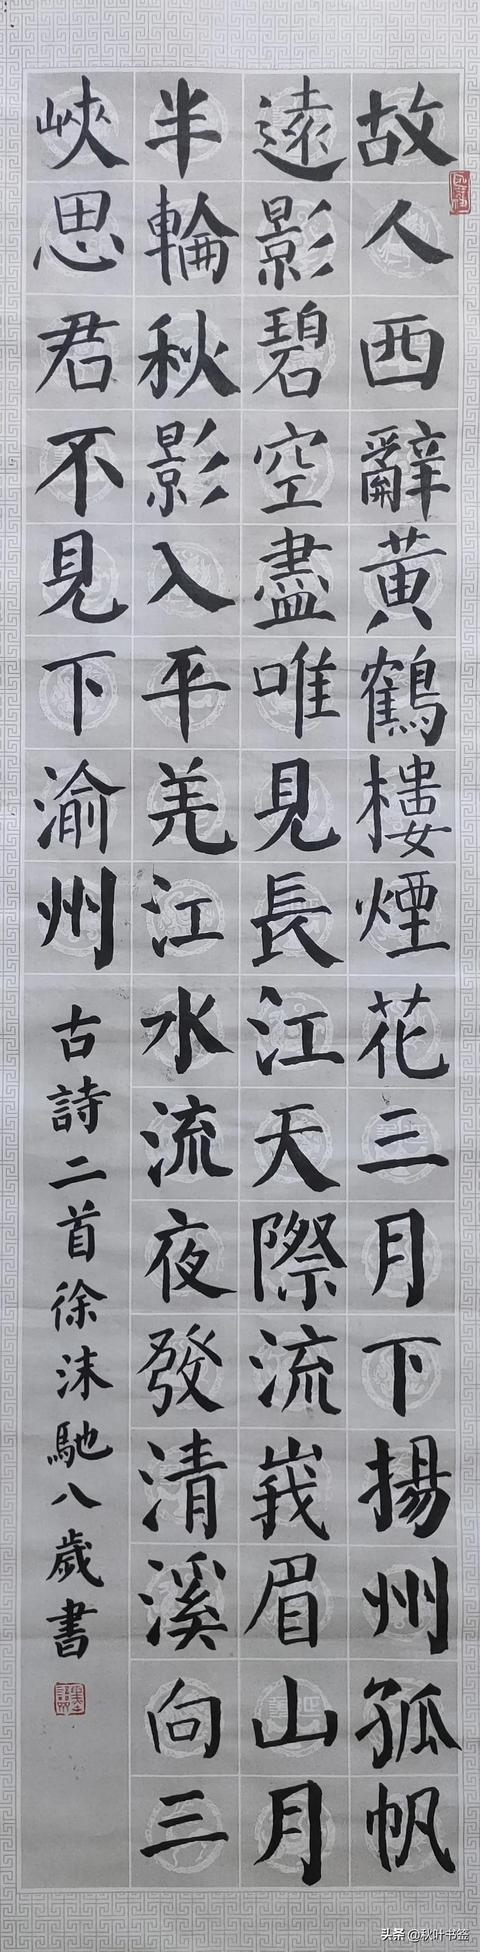 故人西辭黃鶴樓煙花三月下揚州孤帆
遠影碧空盡唯見長江天際流峩眉山月
半輪秋影入平羌江水流夜發清溪向三
峽思君不見下渝州
古詩二首徐沫馳八歲書
头条@秋叶书签